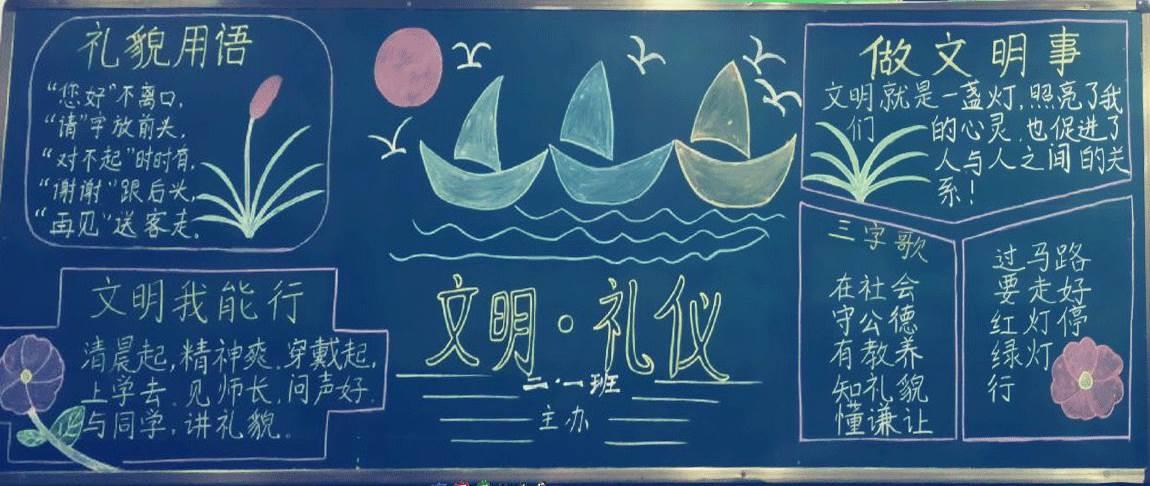 礼貌用语
“您好”不离口,
“请”字放前头,
“对不起”时时有,
“谢谢”跟后头,
“再见”送客走。
文明我能行
清晨起,精神爽.穿戴起,
上学去.见师长,问声好.
与同学,讲礼貌。
文明·礼仪
二·一班
主办
做文明事
文明就是一盏灯,照亮了我
们的心灵.也促进了
人与人之间的关
系!
三字歌
在社会
守公德
有教养
知礼貌
懂谦让
过马路
要走好
红灯停
绿灯
行